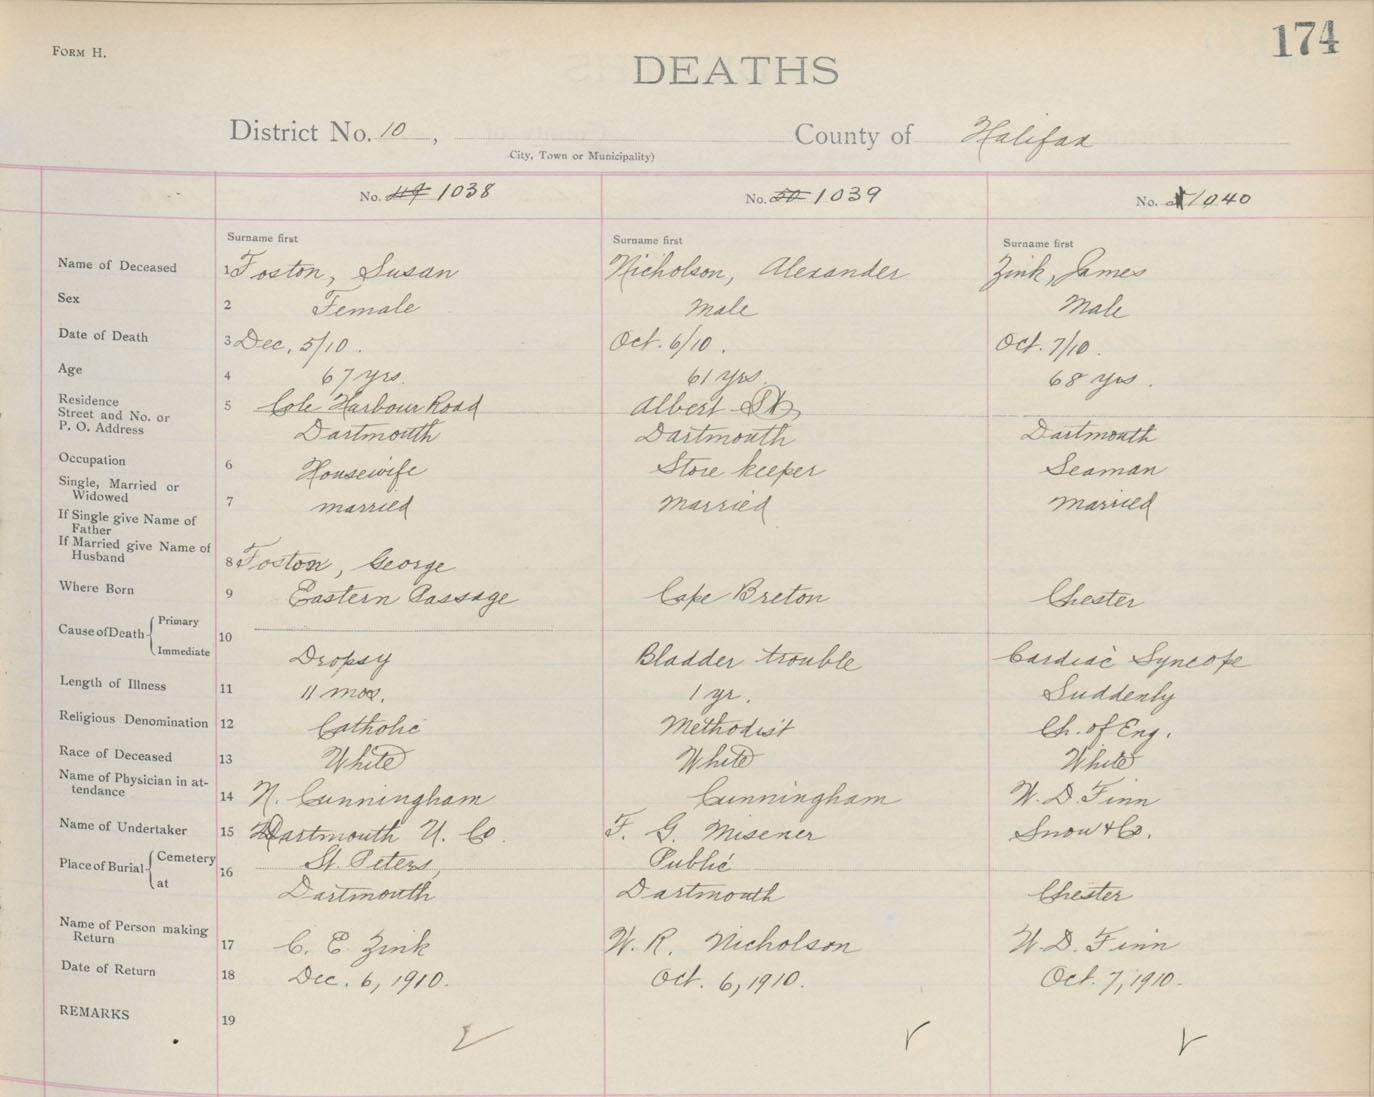 174
FORM H.
DEATHS
District No. 10 , County of Halifax
City, Town or Municipality)
No. 49 1038 No. 50 1039 No. 1040
Surname first Surname first Surname first
Name of Deceased 1 Foston, Susan Nicholson, Alexander Zink, James
Sex 2 Female Male Male
Date of Death 3 Dec. 5/10. Oct. 6/10. Oct. 7/10.
Age 4 67 yrs. 61 yrs. 68 yrs.
Residence
Street and No. or 5 Cole Harbour Road Albert St.
P. O. Address Dartmouth Dartmouth Dartmouth
Occupation 6 Housewife Store keeper Seaman
Single, Married or
Widowed 7 married married married
If Single give Name of
Father
If Married give Name of
Husband 8 Foston, George
Where Born 9 Eastern Passage Cape Breton Chester
Cause of Death Primary
10
Immediate Dropsy Bladder trouble Cardiac Syncope
Length of Illness 11 11 mos. 1 yr. Suddenly
Religious Denomination 12 Catholic Methodist Ch. of Eng.
Race of Deceased 13 White White White
Name of Physician in at-
tendance 14 N. Cunningham Cunningham W. D. Finn
Name of Undertaker 15 Dartmouth U. Co. F. G. Misener Snow & Co.
Place of Burial Cemetery 16 St. Peters, Public
at Dartmouth Dartmouth Chester
Name of Person making
Return 17 C. E. Zink W. R. Nicholson W. D. Finn
Date of Return 18 Dec. 6, 1910. Oct. 6, 1910. Oct. 7, 1910.
REMARKS 19